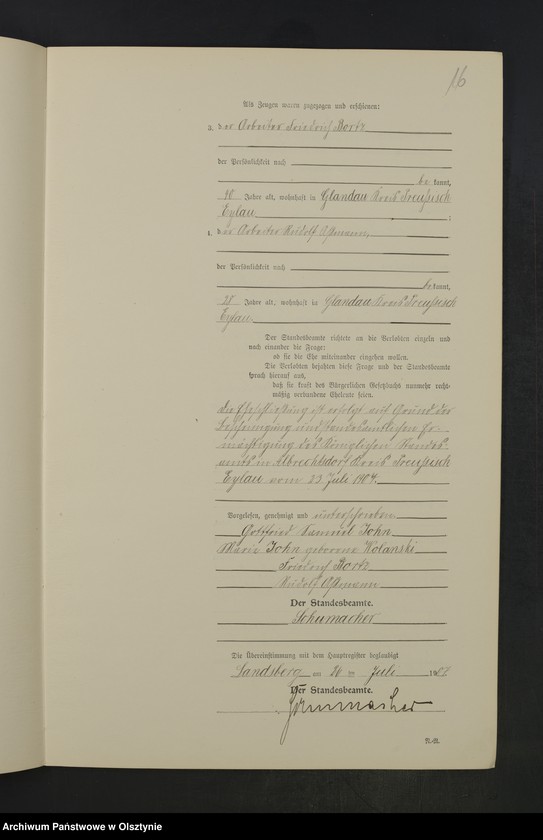 16
Als Zeugen waren zugezogen und erschienen:
3. der Arbeiter Friedrich Bortz
der Persönlichkeit nach
be kannt,
40 Jahre alt, wohnhaft in Glandau Kreis Preußisch
Eylau ;
4. der Arbeiter Rudolf Aßmann,
der Persönlichkeit nach
be kannt,
28 Jahre alt, wohnhaft in Glandau Kreis Preußisch
Eylau.
Der Standesbeamte richtete an die Verlobten einzeln und
nach einander die Frage:
ob sie die Ehe miteinander eingehen wollen.
Die Verlobten bejahten diese Frage und der Standesbeamte
sprach hierauf aus,
daß sie kraft des Bürgerlichen Gesetzbuchs nunmehr recht-
mäßig verbundene Eheleute seien.
Die Eheschließung ist erfolgt auf Grund der
Bescheinigung und standesamtlichen Er-
mächtigung des Königlichen Standes-
amts in Albrechtsdorf Kreis Preußisch
Eylau vom 23. Juli 1904.
Vorgelesen, genehmigt und unterschrieben
Gottfried Samuel John
Maria John geborene Kolanski
Friedrich Bortz
Rudolf Aßmann
Der Standesbeamte.
Schumacher
Die Übereinstimmung mit dem Hauptregister beglaubigt
Landsberg am 26 ten Juli 190
Der Standesbeamte.
Schumacher
N.-N.
Archiwum Państwowe w Olsztynie